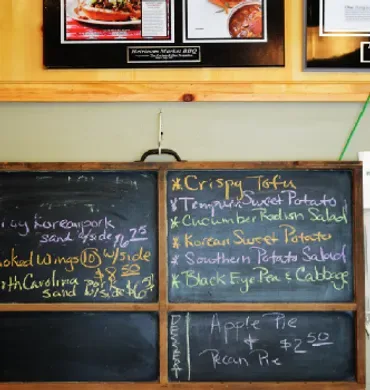 Heirloom Market BBQ
Korean pork
sand & side $6.25
oked Wings (10) w/side
$8.50
rth Carolina pork
sand w/side $6
* Crispy Tofu
* Tempura Sweet Potato
* Cucumber Radish Salad
* Korean Sweet Potato
* Southern Potato Salad
* Black Eye Pea & Cabbage
DESSERT
Apple Pie
+ $2.50
Pecan Pie